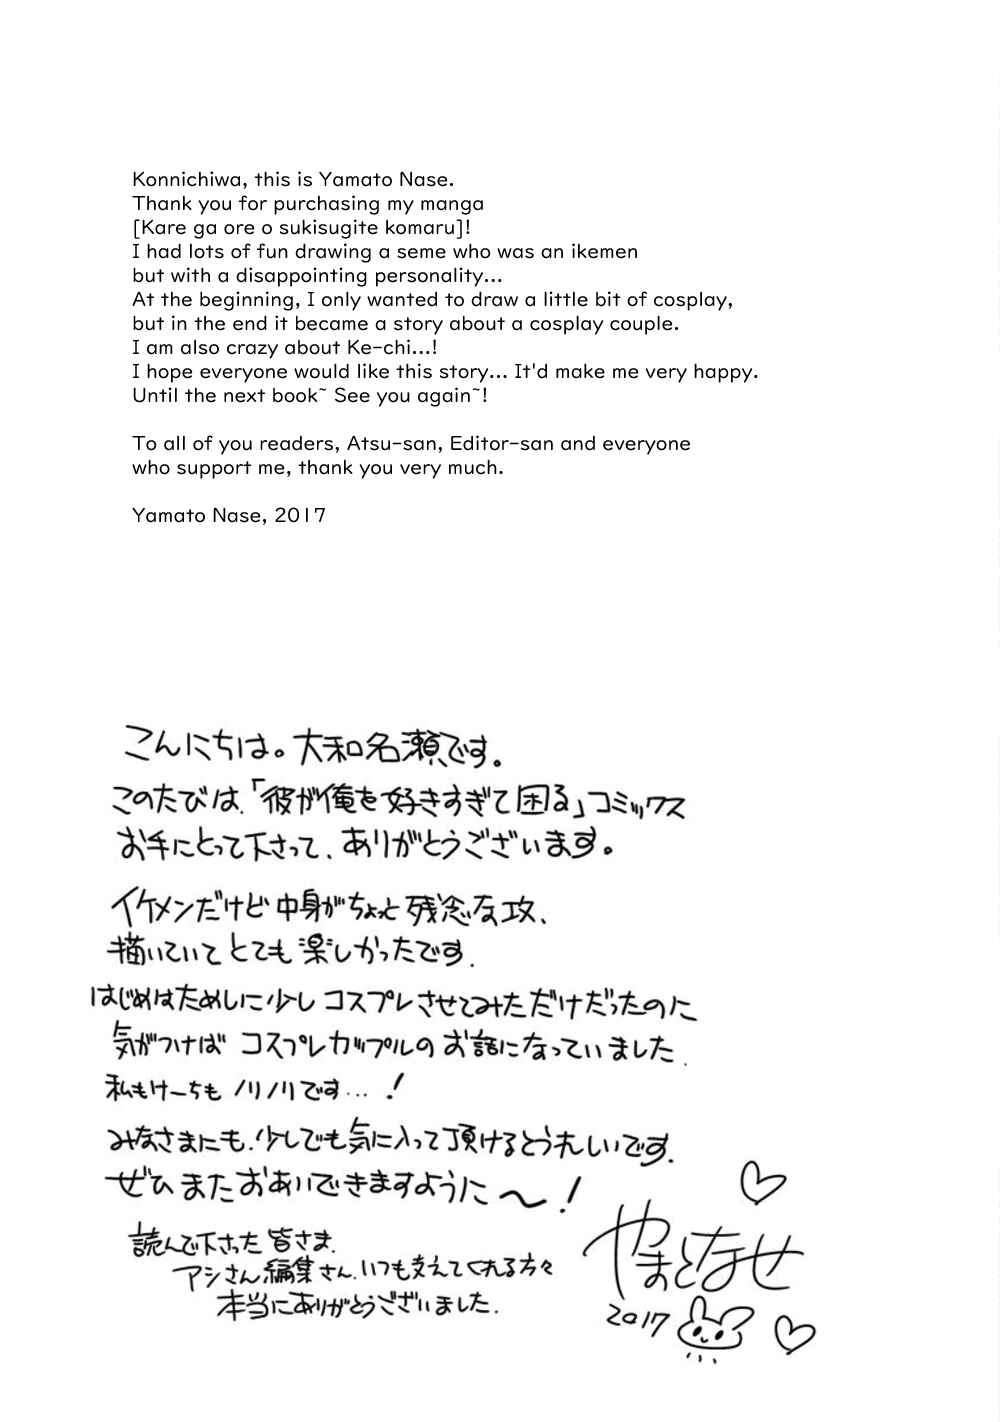 Konnichiwa, this is Yamato Nase.
Thank you for purchasing my manga
[Kare ga ore o sukisugite komaru]!
I had lots of fun drawing a seme who was an ikemen
but with a disappointing personality...
At the beginning, I only wanted to draw a little bit of cosplay,
but in the end it became a story about a cosplay couple.
I am also crazy about Ke-chi...!
I hope everyone would like this story... It'd make me very happy.
Until the next book~ See you again~!
To all of you readers, Atsu-san, Editor-san and everyone
who support me, thank you very much.
Yamato Nase, 2017
こんにちは。大和名瀬です。
このたびは、「彼が俺を好きすぎて困る」コミックス
お手にとって下さって、ありがとうございます。
イケメンだけど中身がちょっと残念な攻、
描いていてとても楽しかったです。
はじめはためしに少しコスプレさせてみただけだったのに
気がつけばコスプレカップルのお話になっていました。
私もけーちもノリノリです…!
みなさまにも、少しでも気に入って頂けるとうれしいです。
ぜひまたおあいできますように〜!
読んで下さった皆さま、
アシさん編集さん、いつも支えてくれる方々
本当にありがとうございました。
やまとなせ
2017